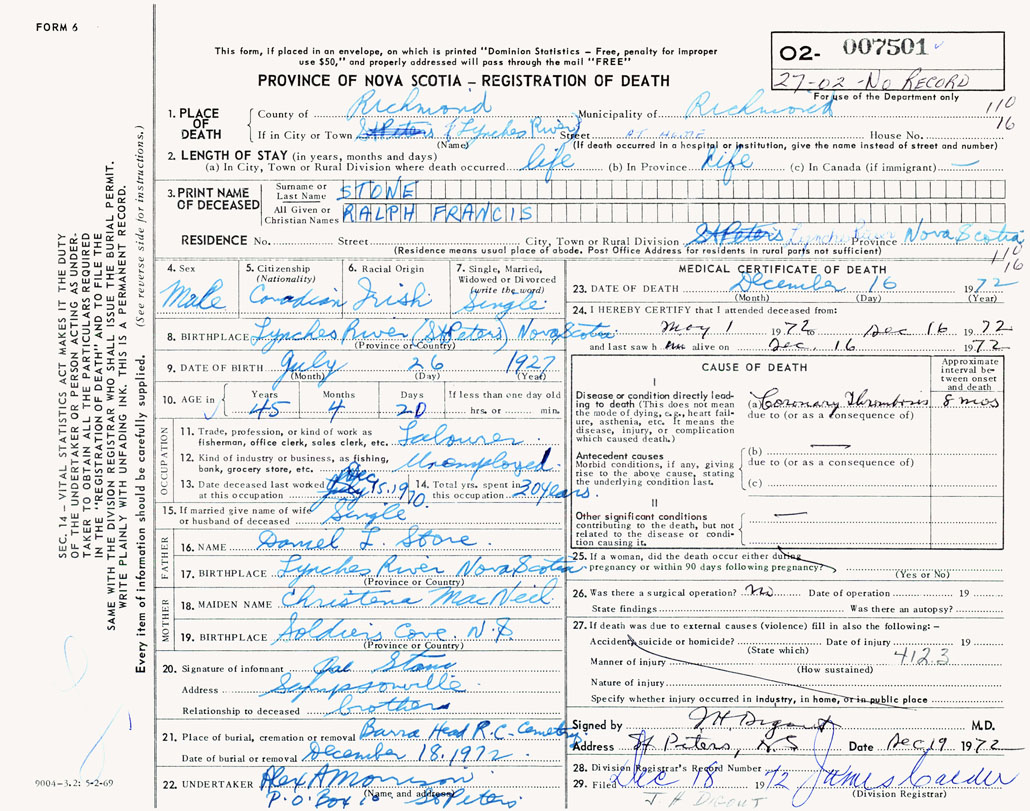 FORM 6
This form, if placed in an envelope, on which is printed "Dominion Statistics — Free, penalty for improper
use $50," and properly addressed will pass through the mail "FREE"
PROVINCE OF NOVA SCOTIA — REGISTRATION OF DEATH
O2- 007501
27-02-No RECORD
For use of the Department only
110
16
1. PLACE OF DEATH
County of Richmond Municipality of Richmond
If in City or Town St Peters (Lynches River) Street AT HOME House No.
(Name) (If death occurred in a hospital or institution, give the name instead of street and number)
2. LENGTH OF STAY (in years, months and days)
(a) In City, Town or Rural Division where death occurred life (b) In Province life (c) In Canada (if immigrant) —
3. PRINT NAME OF DECEASED
Surname or Last Name STONE
All Given or Christian Names RALPH FRANCIS
RESIDENCE No. Street City, Town or Rural Division St Peters Lynches River Province Nova Scotia
(Residence means usual place of abode. Post Office Address for residents in rural parts not sufficient)
110
16
4. Sex Male
5. Citizenship (Nationality) Canadian
6. Racial Origin Irish
7. Single, Married, Widowed or Divorced (write the word) Single
8. BIRTHPLACE Lynches River (St Peters) Nova Scotia
(Province or Country)
9. DATE OF BIRTH July 26 1927
(Month) (Day) (Year)
10. AGE in Years 45 Months 4 Days 20 If less than one day old hrs. or min.
OCCUPATION
11. Trade, profession, or kind of work as fisherman, office clerk, sales clerk, etc. Labourer
12. Kind of industry or business, as fishing, bank, grocery store, etc. Unemployed.
13. Date deceased last worked at this occupation Dec July 15. 1970
14. Total yrs. spent in this occupation 20 years.
15. If married give name of wife or husband of deceased Single
FATHER
16. NAME Daniel L. Stone
17. BIRTHPLACE Lynches River Nova Scotia
(Province or Country)
MOTHER
18. MAIDEN NAME Christena MacNeil
19. BIRTHPLACE Soldiers Cove. N.S
(Province or Country)
20. Signature of informant Stone
Address Sampsonville
Relationship to deceased brother
21. Place of burial, cremation or removal Barra Head R.C. Cemetery
Date of burial or removal December 18. 1972
22. UNDERTAKER Alex A Morrison
(Name and address) P.O. Box St Peters.
MEDICAL CERTIFICATE OF DEATH
23. DATE OF DEATH December 16 1972
(Month) (Day) (Year)
24. I HEREBY CERTIFY that I attended deceased from:
May 1 1972 to Dec 16 1972
and last saw him alive on Dec. 16 1972
CAUSE OF DEATH
Approximate interval between onset and death
I
Disease or condition directly leading to death (This does not mean the mode of dying, e.g., heart failure, asthenia, etc. It means the disease, injury, or complication which caused death.)
(a) Coronary Thrombosis 8 mos
due to (or as a consequence of)
Antecedent causes
Morbid conditions, if any, giving rise to the above cause, stating the underlying condition last.
(b) —
due to (or as a consequence of)
(c)
II
Other significant conditions contributing to the death, but not related to the disease or condition causing it. —
25. If a woman, did the death occur either during pregnancy or within 90 days following pregnancy?
(Yes or No)
26. Was there a surgical operation? No Date of operation 19
State findings Was there an autopsy?
27. If death was due to external causes (violence) fill in also the following: —
Accident, suicide or homicide? Date of injury 19
(State which) 412.3
Manner of injury
(How sustained)
Nature of injury
Specify whether injury occurred in industry, in home, or in public place
Signed by J H Digout M.D.
Address St Peters, N.S Date Dec 19 1972
28. Division Registrar's Record Number
29. Filed Dec 18 1972 James Calder
(Division Registrar)
J. H DIGOUT
SEC. 14 — VITAL STATISTICS ACT MAKES IT THE DUTY
OF THE UNDERTAKER OR PERSON ACTING AS UNDER-
TAKER TO OBTAIN ALL THE PARTICULARS REQUIRED
IN THE "REGISTRATION OF DEATH" AND TO FILE THE
SAME WITH THE DIVISION REGISTRAR WHO SHALL ISSUE THE BURIAL PERMIT.
WRITE PLAINLY WITH UNFADING INK. THIS IS A PERMANENT RECORD.
Every item of information should be carefully supplied. (See reverse side for instructions.)
9004-3.2: 5-2-69